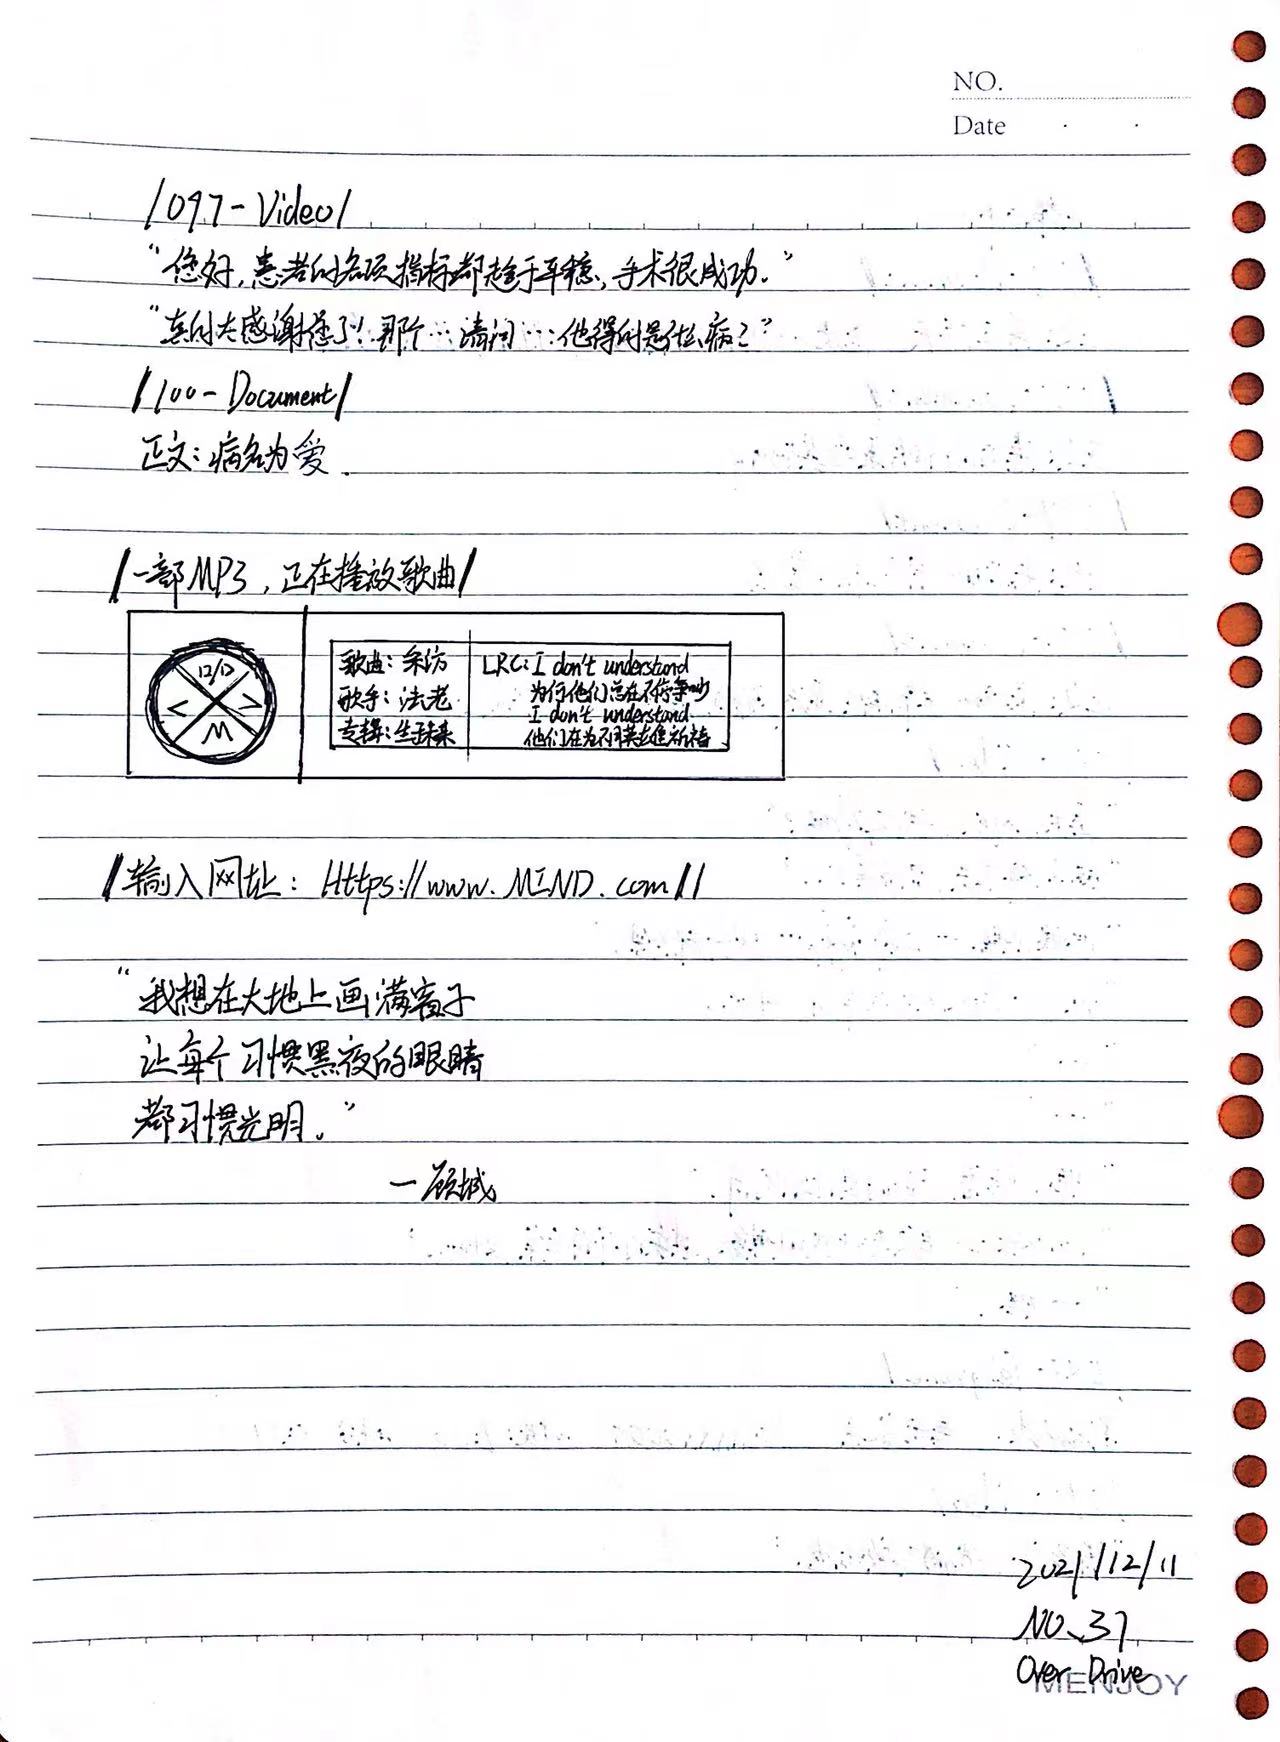 NO.
Date
/097-Video/
“您好,患者的各项指标都趋于平稳,手术很成功。”
“真的太感谢您了!那个…请问…他得的是什么病?”
/100-Document/
正文:病名为爱.
/一部MP3,正在播放歌曲/
12/12
< >
M
歌曲:采访
歌手:法老
专辑:生于未来
LRC:I don't understand
为何他们总在不停争吵
I don't understand
他们在为不同英雄祈祷
/输入网址:Https://www.MIND.com//
“我想在大地上画满窗子
让每个习惯黑夜的眼睛
都习惯光明。”
—顾城
2021/12/11
NO.37
Over Drive
MENJOY